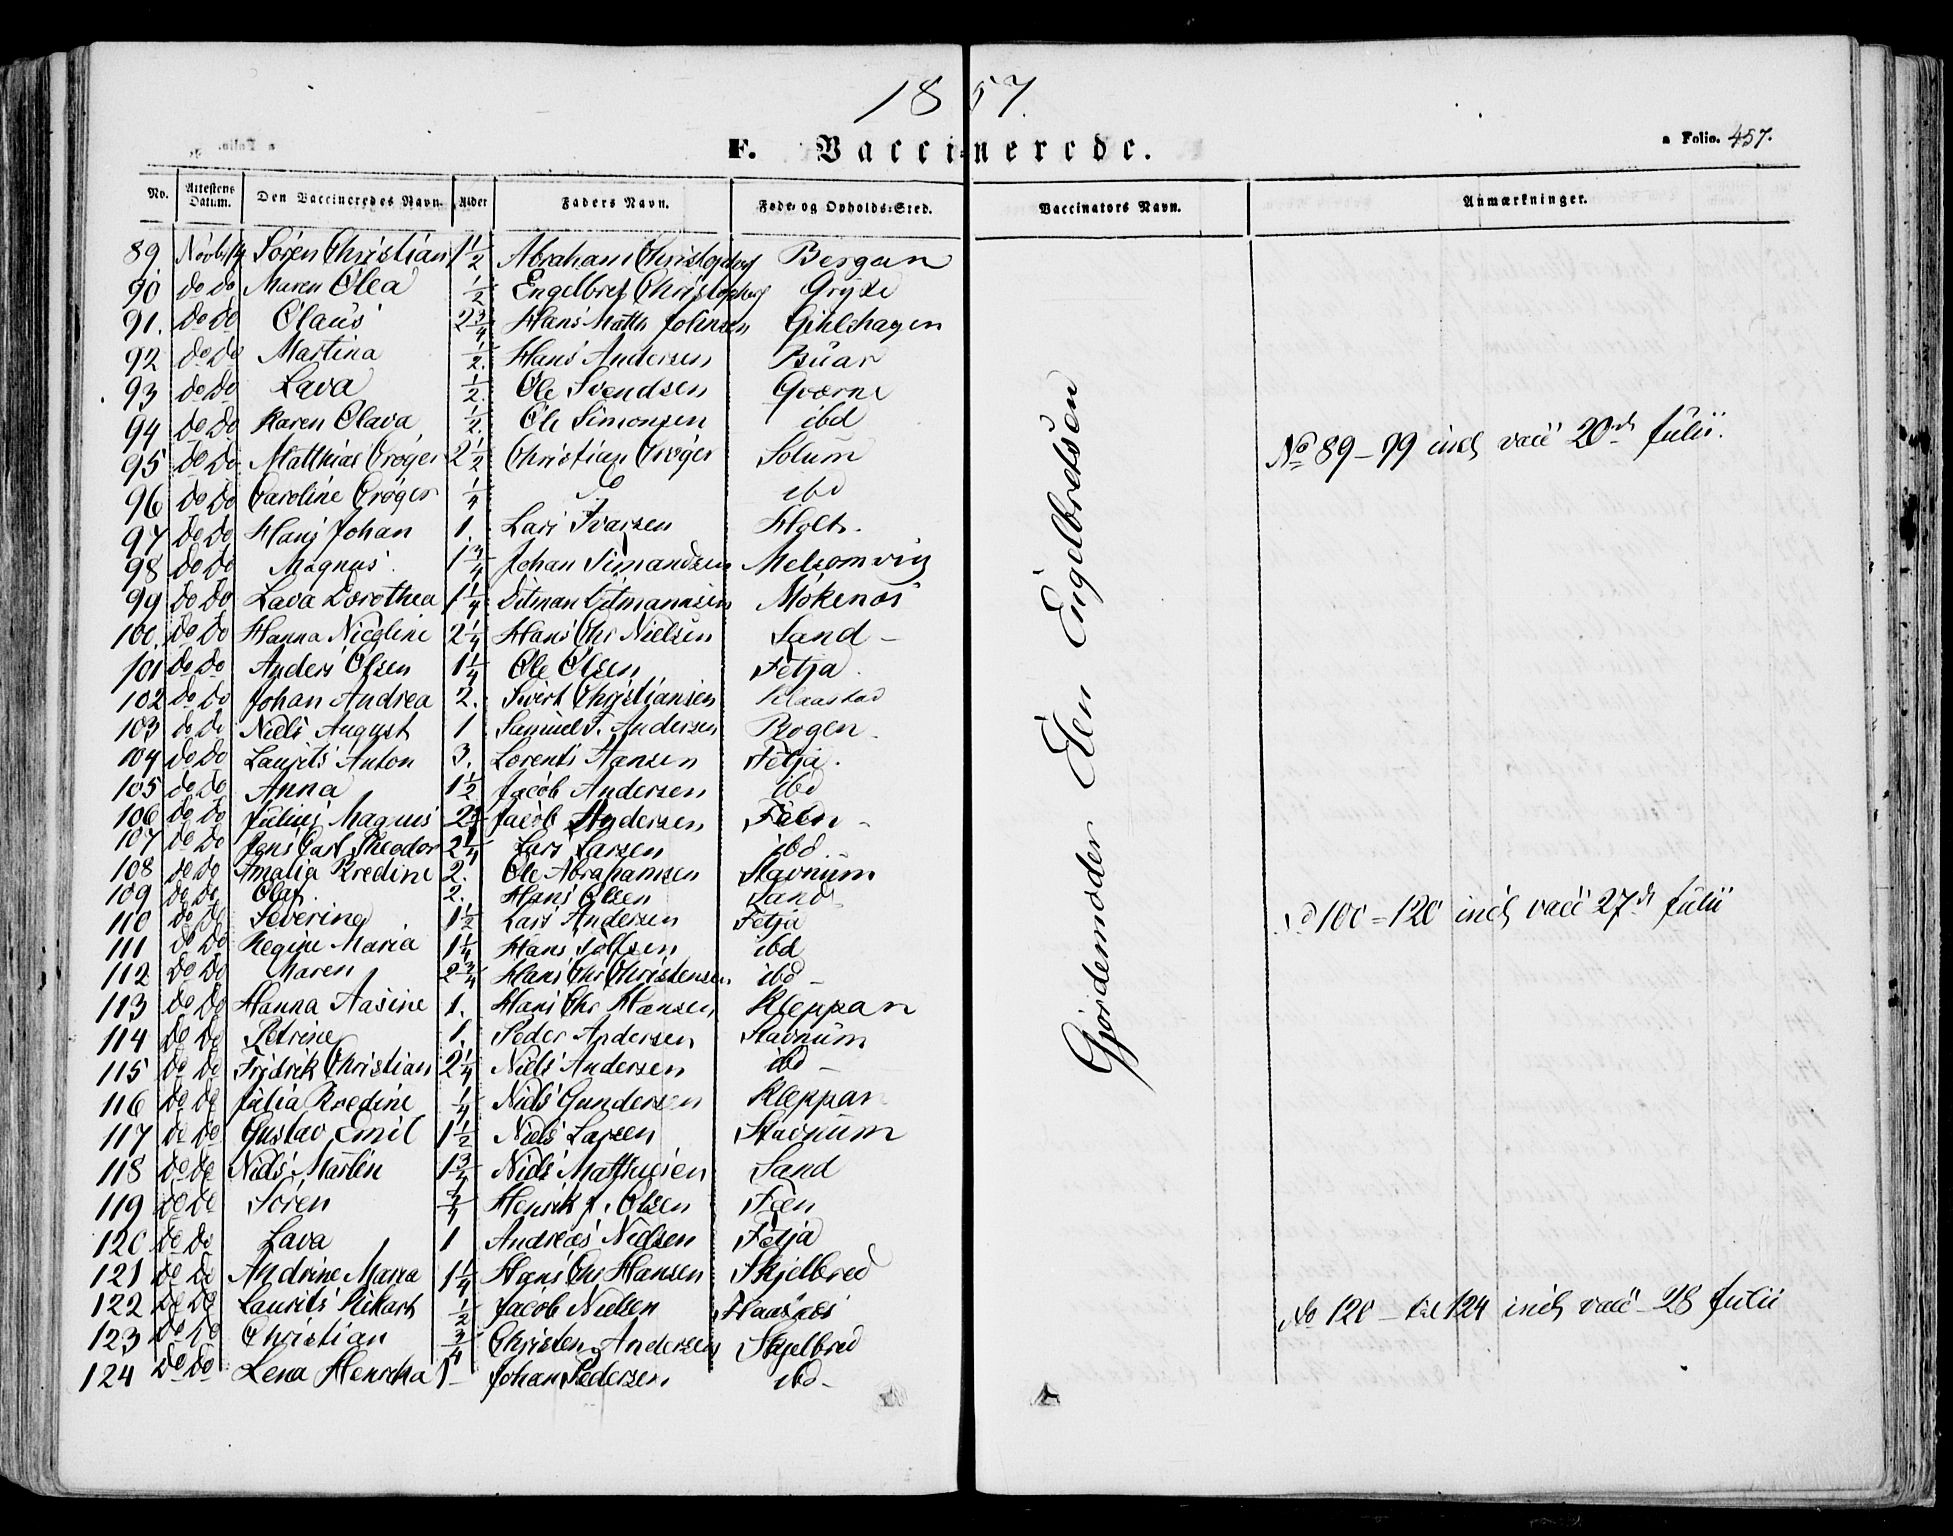 1857.
F. Vaccinerede.
a Folio. 457.
No. Attestens Datum. Den Vaccineredes Navn. Alder Faders Navn. Føde- og Opholds-Sted. Vaccinators Navn. Anmærkninger.
89 Novb. 14 Søren Christian 1 1/2 Abraham Bergan
90 Do Do Maren Olea 1/2 Engelbret
91. Do Do Olaus 2 3/4 Hans Matth Johnsen Gihlehagen
92 Do Do Martina 1/2. Hans Andersen Buar
93 Do Do Lava 1/2. Ole Svendsen Qværne
94 Do Do Karen Olava 1/2. Ole Simonsen ibd
95 Do Do Matthias Crøger 2 1/2 Christian Crøger Solum
96 Do Do Caroline Crøger 1/4 ibd
97 Do Do Hans Johan 1. Lars Ivarsen Holt.
98 Do Do Magnus. 1 3/4 Johan Simandsen Melsomvig
99 Do Do Lava Dorothea 1 1/4 Ditman Ditmannsen Mökenes
100. Do Do Hanna Nicoline 2 1/4 Hans Chr Nielsen Sand
101 Do Do Anders Olsen 1 1/4 Ole Olsen Fetja.
102 Do Do Johan Andrea 2. Sivert Christiansen Klaastad
103 Do Do Niels August 1 Samuel F. Andersen Bogen
104 Do Do Laurits Anton 3. Lorents Hansen Fetja.
105 Do Do Anna 1 1/2 Jacob Andersen ibd
106 Do Do Julius Magnus Jacob Andersen Feen
107 Do Do Jens Carl Theodor 2 1/4 Lars Larsen ibd.
108 Do Do Amalia Bredine 2. Ole Abrahamsen Stavnum
109 Do Do Olaf. 2. Hans Olsen Sand
110 Do Do Severine 1 1/2 Lars Andersen Fetja
111 Do Do Regine Maria 1 1/4 Hans ibd
112 Do Do Maren 2 3/4 Hans Chr Christensen ibd
113 Do Do Hanna Aasine 1. Hans Chr Hansen Kleppan
114 Do Do Petrine 1. Peder Andersen Stavnum
115 Do Do Fridrik Christian 2 1/4 Niels Andersen ibd
116 Do Do Julia Bredine 1/4 Niels Gundersen Kleppan
117 Do Do Gustav Emil 1 1/2 Niels Larsen Stavnum
118 Do Do Niels Martin 1 3/4 Niels Mathiesen Sand
119 Do Do Søren 3/4 Henrik J. Olsen Feen
120 Do Do Lava 1 Andreas Nielsen Fetja
121 Do Do Andrine Maria 1 1/4 Hans Chr Hansen Skjelbred
122 Do Do Laurits Rikart 1/2 Jacob Nielsen Haasnæs
123 Do Do Christian 3/4 Christen Andersen Skjelbred
124 Do Do Lena Henrika 1 Johan Pedersen ibd
Gjordemoder Elen Engelbretsen
No 89 - 99 incl vacc 20de Julii.
No 100 - 120 incl vacc 27de Julii
No 120 - til 124 incl vacc 28 Julii